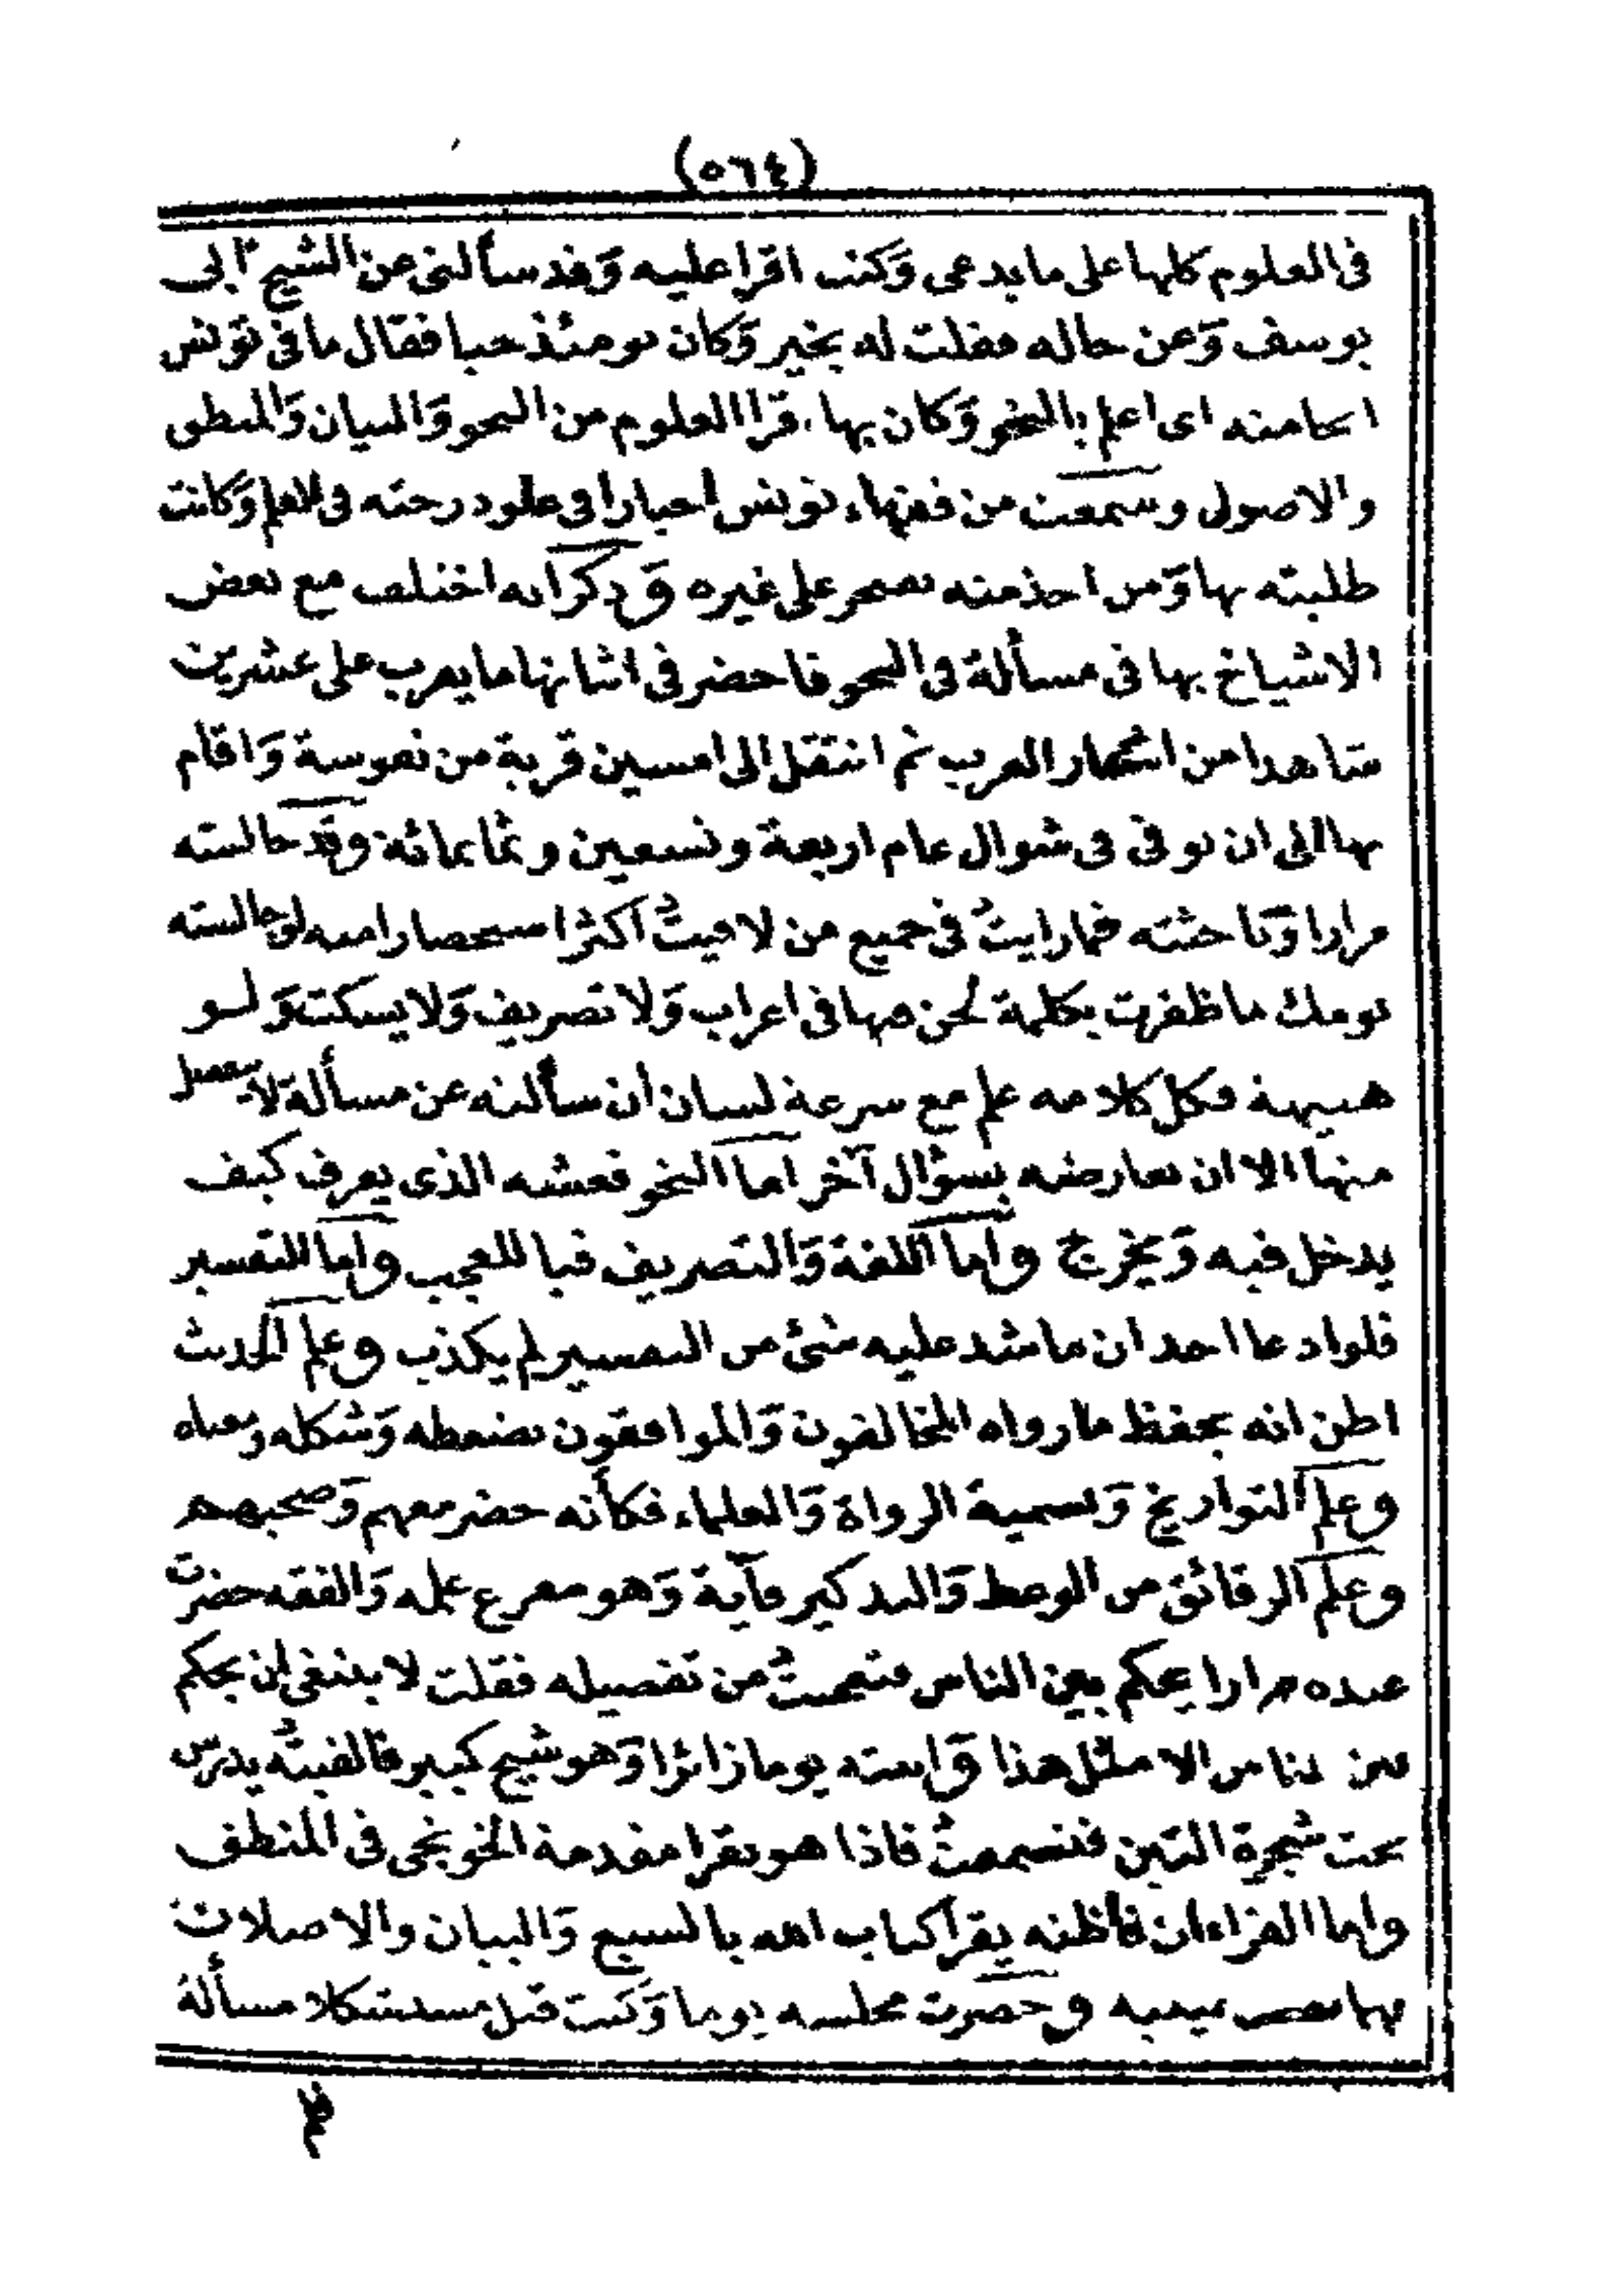 (٥٦٤)
فى العلوم كلها على ما يدعى وَكنت اقرا عليه وَقد سألنى عن الشيخ ابى
يوسف وَعن حاله فقلت له بخير وَكان يومئذ حيا فقال ما فى تونس
انحا منه اى اعلم بالنحو وَكان بها قرا العلوم من النحو وَالبيان وَالمنطق
والاصول وسمعت من فقهاء تونس اخبارا فى علو درجته فى العلم وَكانت
طلبته بها وَمن اخذ منه تفتخر على غيره وَذكر انه اختلف مع بعض
الاشياخ بها فى مسألة فى النحو فاحضر فى اثنائها ما يعرب على عشرين
شاهدا من اشعار العرب ثم انتقل الى امسين قرية من نفوسة وَاقام
بها الى ان توفى فى شوال عام اربعة وتسعين وثمانمائة وقد جالسته
مرارا وَباحثته فما رايتُ فى جميع من لاقيتُ اكثر استحضارا منه لو جالسته
يومك ما ظفرت بكلمة لحن فيها فى اعراب وَلا تصريف وَلا يسكت وَلو
هنيهة فكل كلامه علم مع سرعة لسان ان سألته عن مسألة لا ينفصل
منها الا ان تعارضه بسؤال آخر اما النحو فعشه الذى يعرف كيف
يدخل فيه وَيخرج واما اللغة وَالتصريف فيا للعجب واما التفسير
فلو ادعا احد ان ما شذ عليه شئ من التفسير لم يكذب وعلم الحديث
اظن انه يحفظ ما رواه المخالفون وَالموافقون بضبطه وَشكله ومعناه
وعلم التواريخ وَتسمية الرواة وَالعلماء فكأنه حضر معهم وَصحبهم
وعلم الرقائق من الوعظ وَالتذكير فآية وَهو مفرع علمه وَالفقه حضرت
عنده مرارا يحكم بين الناس فتعجبتُ من تفصيله فقلت لا ينبغى ان يحكم
بين الناس الا مثل هذا وَاتيته يوما زائرا وَهو شيخ كبير فالفيتُه يدرّس
تحت شجرة التين فتسمعتُ فاذا هو يقرا مقدمة الخونجى فى المنطق
واما القراءان فاظنه يقرأ كتاب الله بالسبع وَالبيان والاصلات
بها نصب عينيه وحضرت مجلسه يوما وَكنت قبل مستشكلا مسألة
فلم